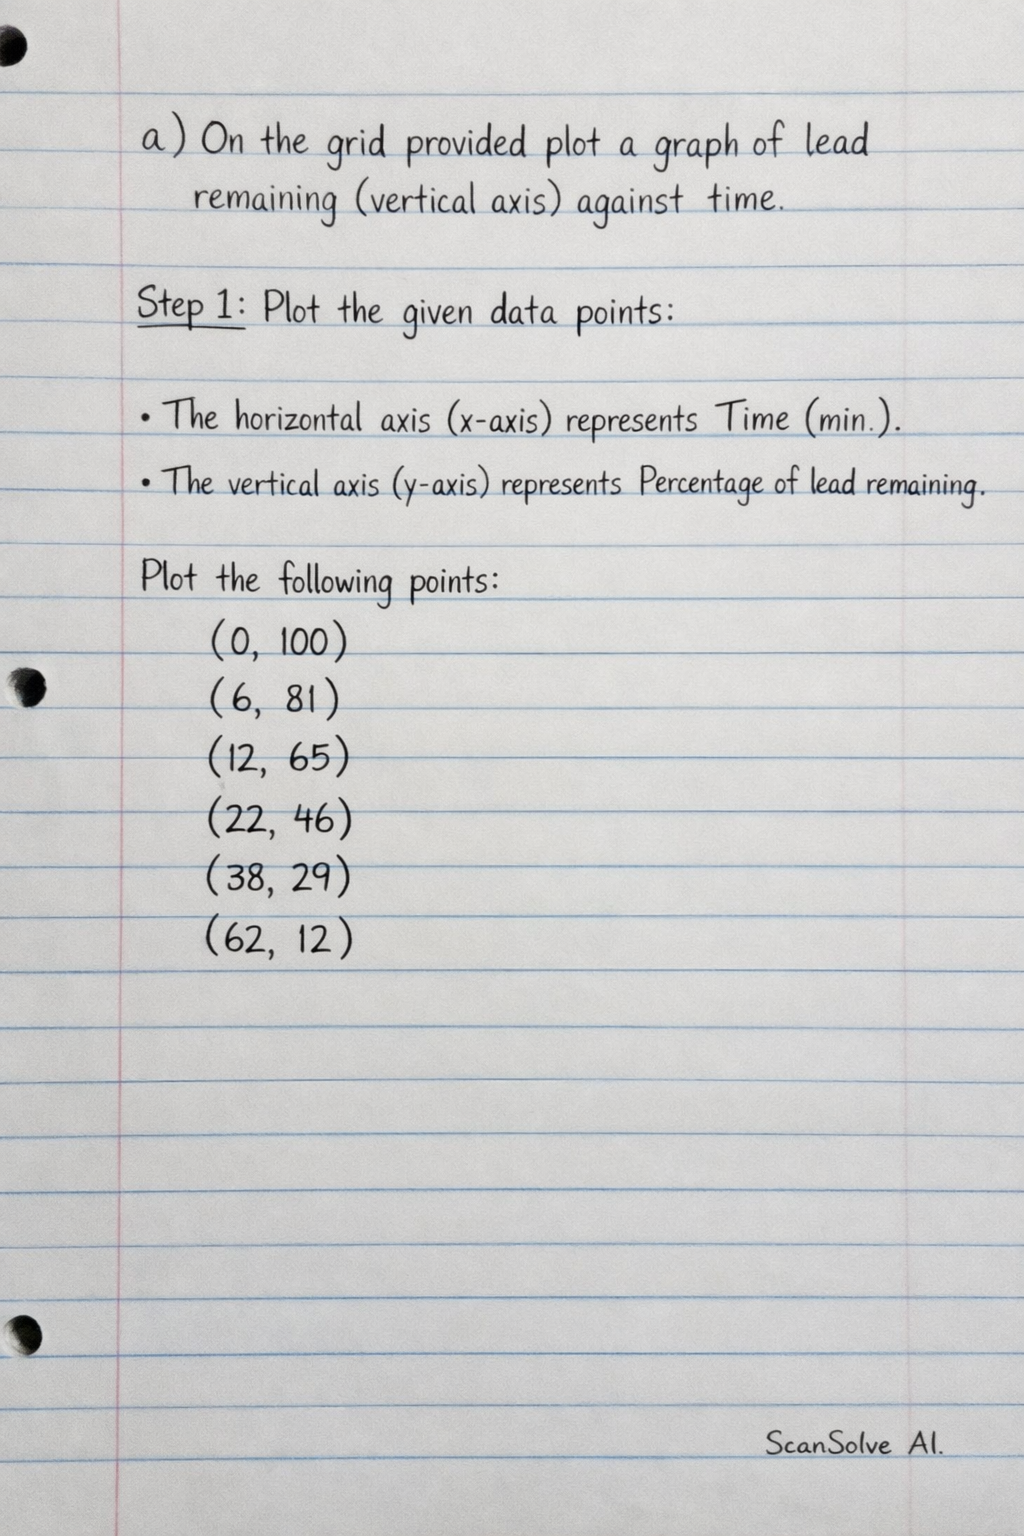 a) On the grid provided plot a graph of lead
remaining (vertical axis) against time.
Step 1: Plot the given data points:
• The horizontal axis (x-axis) represents Time (min.).
• The vertical axis (y-axis) represents Percentage of lead remaining.
Plot the following points:
(0, 100)
(6, 81)
(12, 65)
(22, 46)
(38, 29)
(62, 12)
ScanSolve AI.